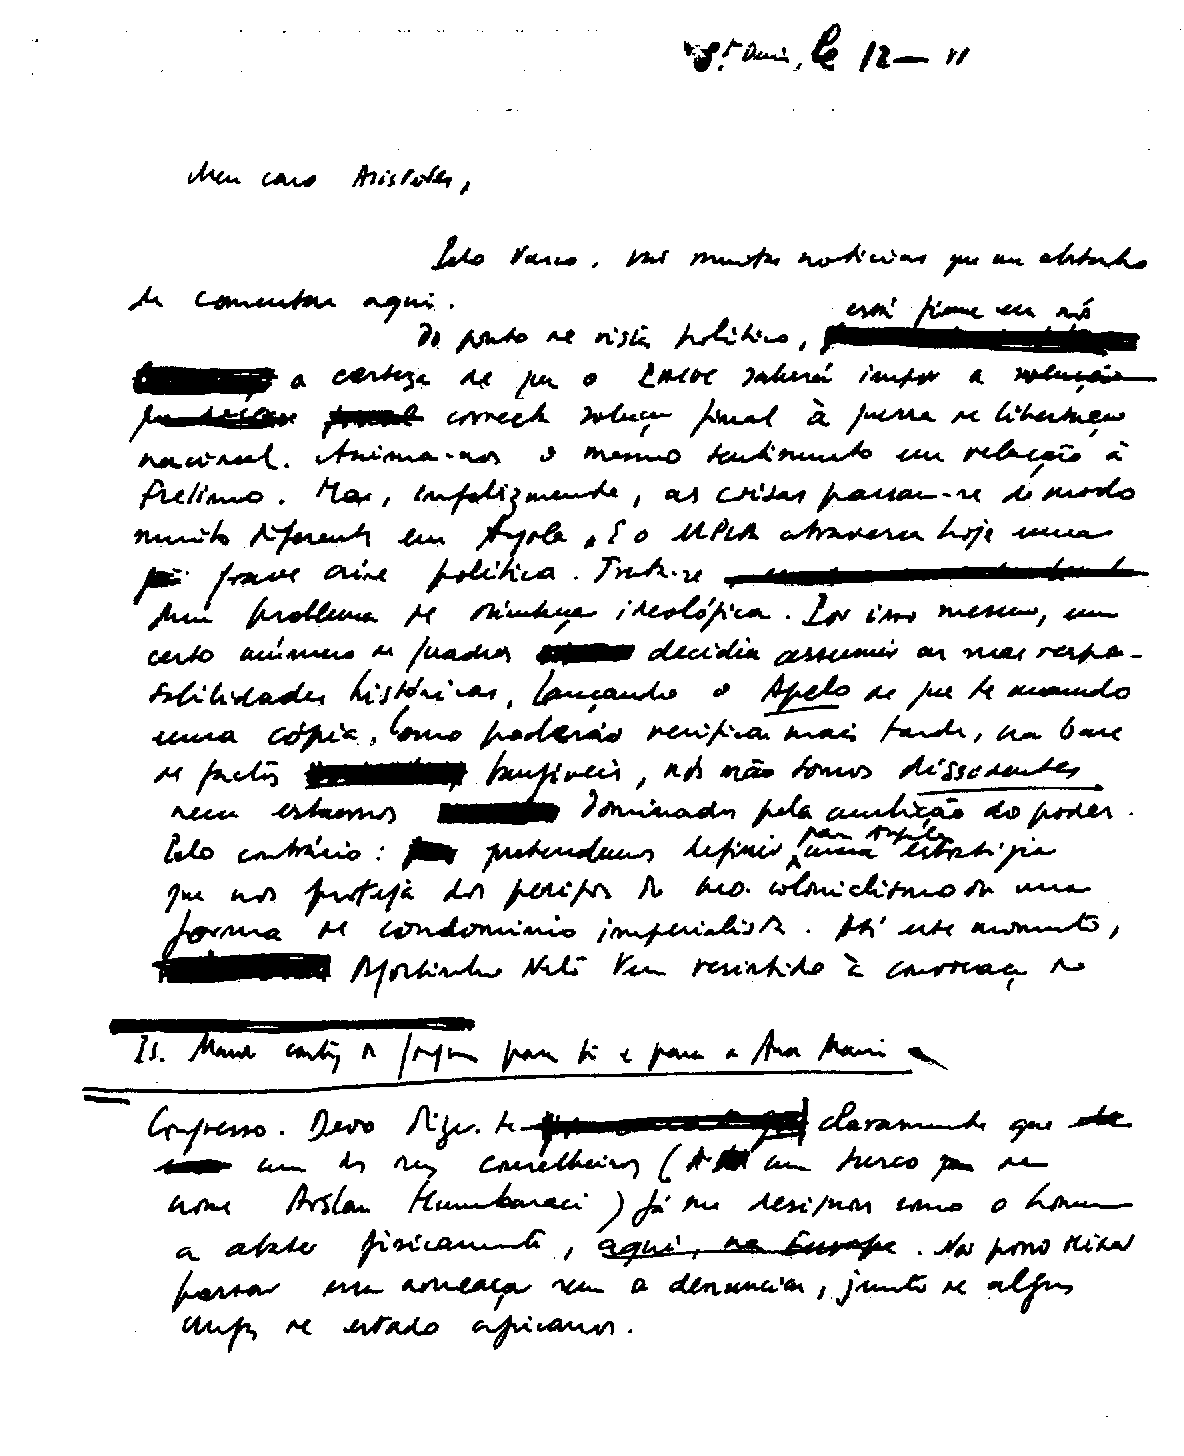 St Denis, le 12 — 11
Meu caro Aristides,
Pelo Vasco, vais muitas noticias que me abstenho
de comentar aqui.
está firme em nós
Do ponto de vista político,
a certeza de que o PAIGC saberá impor a solução
correcta solução final à guerra de libertação
nacional. Anima-nos o mesmo sentimento em relação à
Frelimo. Mas, infelizmente, as coisas passam-se de modo
muito diferente em Angola. E o MPLA atravessa hoje uma
grave crise política. Trata-se
dum problema de ideológica. Por isso mesmo, um
certo número de quadros decidiu assumir as suas respon-
sabilidades históricas, lançando o Apelo de que te mando
uma cópia. Como poderão verificar mais tarde, na base
de factos tangíveis, nós não somos dissidentes
nem estamos dominados pela ambição do poder.
Pelo contrário: pretendemos definir para Angola uma estratégia
que nos proteja dos perigos do neo-colonialismo ou uma
forma de condomínio imperialista. Até este momento,
Agostinho Neto tem resistido à convocação do
PS. Mando cartas de para ti e para a Ana Maria
Congresso. Devo dizer-te claramente que
um dos seus conselheiros (um turco de
nome Arslan Humbaraci) já me designou como o homem
a abater fisicamente, aqui, na Europa. Não posso deixar
passar uma ameaça sem a denunciar, junto de alguns
chefes de estado africanos.